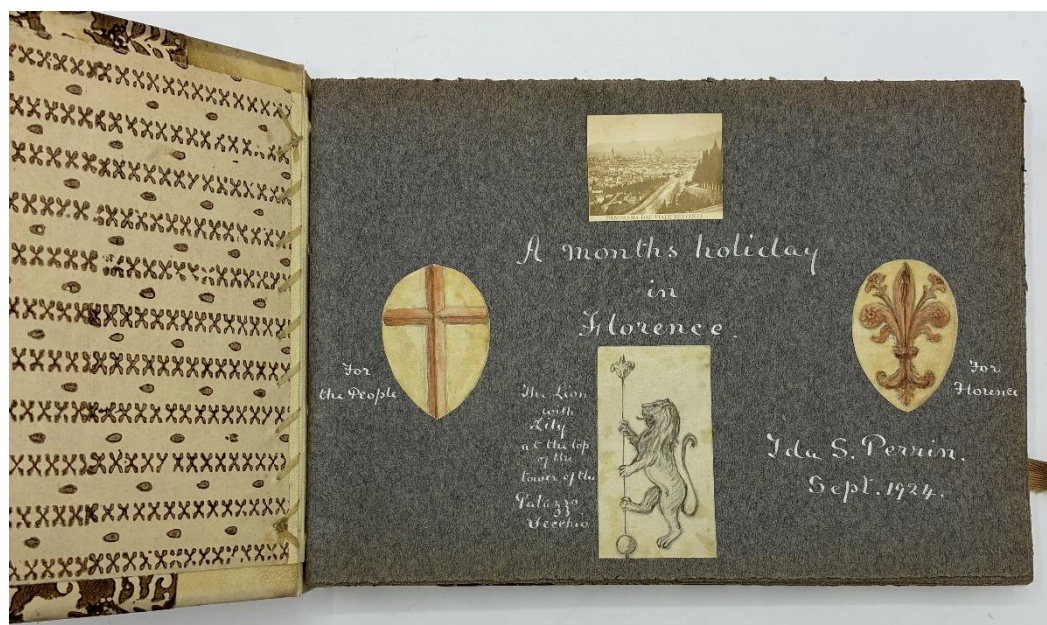 PANORAMA DAL VIALE DEI COLLI
A months holiday
in
Florence.
For
the People
The Lion
with
Lily
at the top
of the
tower of the
Palazzo
Vecchio
For
Florence
Ida S. Perrin.
Sept. 1924.